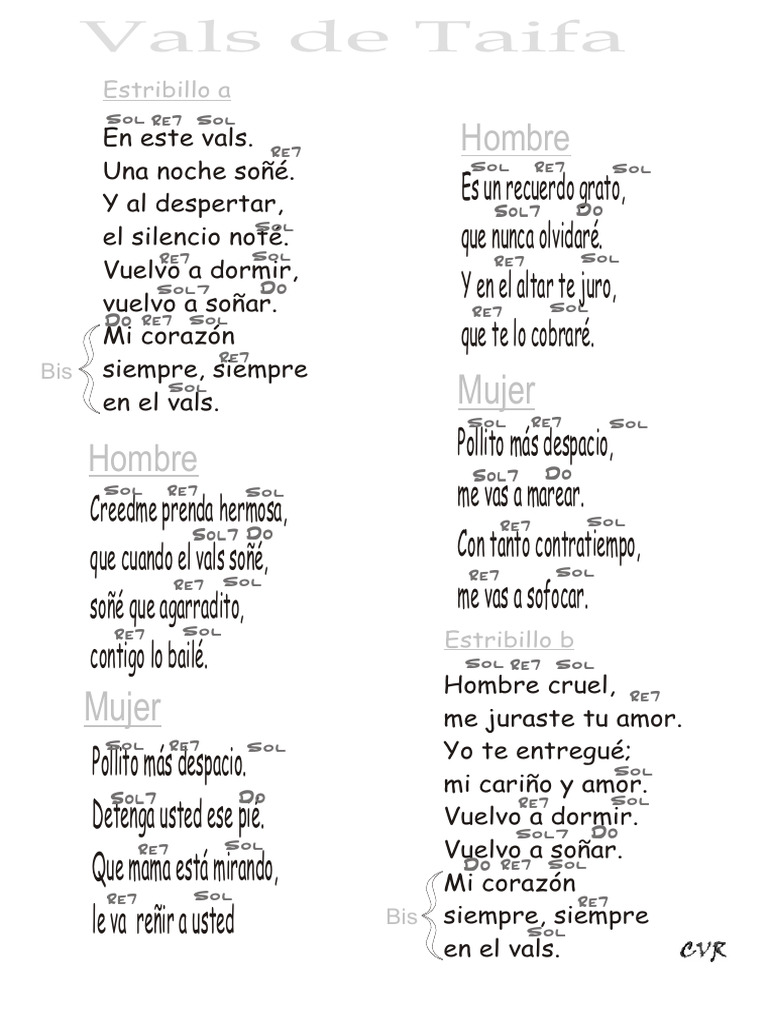 Vals de Taifa
Estribillo a
SOL RE7 SOL
En este vals.
RE7
Una noche soñé.
Y al despertar,
SOL
el silencio noté.
RE7 SOL
Vuelvo a dormir,
SOL7 DO
vuelvo a soñar.
DO RE7 SOL
Mi corazón
RE7
Bis siempre, siempre
SOL
en el vals.
Hombre
SOL RE7 SOL
Creedme prenda hermosa,
SOL7 DO
que cuando el vals soñé,
RE7 SOL
soñé que agarradito,
RE7 SOL
contigo lo bailé.
Mujer
SOL RE7 SOL
Pollito más despacio.
SOL7 DO
Detenga usted ese pie.
RE7 SOL
Que mama está mirando,
RE7 SOL
le va reñir a usted
Hombre
SOL RE7 SOL
Es un recuerdo grato,
SOL7 DO
que nunca olvidaré.
RE7 SOL
Y en el altar te juro,
RE7 SOL
que te lo cobraré.
Mujer
SOL RE7 SOL
Pollito más despacio,
SOL7 DO
me vas a marear.
RE7 SOL
Con tanto contratiempo,
RE7 SOL
me vas a sofocar.
Estribillo b
SOL RE7 SOL
Hombre cruel,
RE7
me juraste tu amor.
Yo te entregué;
SOL
mi cariño y amor.
RE7 SOL
Vuelvo a dormir.
SOL7 DO
Vuelvo a soñar.
DO RE7 SOL
Mi corazón
RE7
Bis siempre, siempre
SOL
en el vals.
CVR